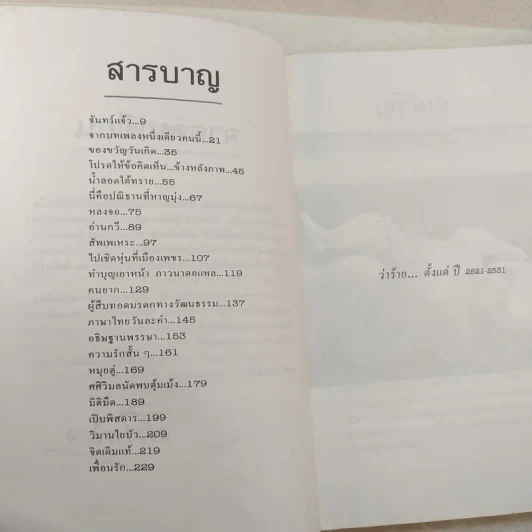 สารบาญ
จันทร์แจ้ว...9
จากบทเพลงหนึ่งเดียวคนนี้...21
ของขวัญวันเกิด...35
โปรดให้ข้อคิดเห็น...ข้างหลังภาพ...45
น้ำลอดใต้ทราย...55
นี่คือปณิธานที่หาญมุ่ง...67
หลงจอ...75
อ่านกวี...89
สัพเพเหระ...97
ไปเชิดหุ่นที่เมืองเพชร...107
ทำบุญเอาหน้า ภาวนาตอแหล...119
คนยาก...129
ผู้สืบทอดมรดกทางวัฒนธรรม...137
ภาษาไทยวันละคำ...145
อธิษฐานพรรษา...153
ความรักสั้น ๆ...161
หมุยคู่...169
ศศิวิมลนัดพบตุ้มเม้ง...179
มิติมืด...189
เป็บพิสดาร...199
วิมานใยบัว...209
จิตเดิมแท้...219
เพื่อนรัก...229
ว่าร้าย... ตั้งแต่ ปี 2521-2531